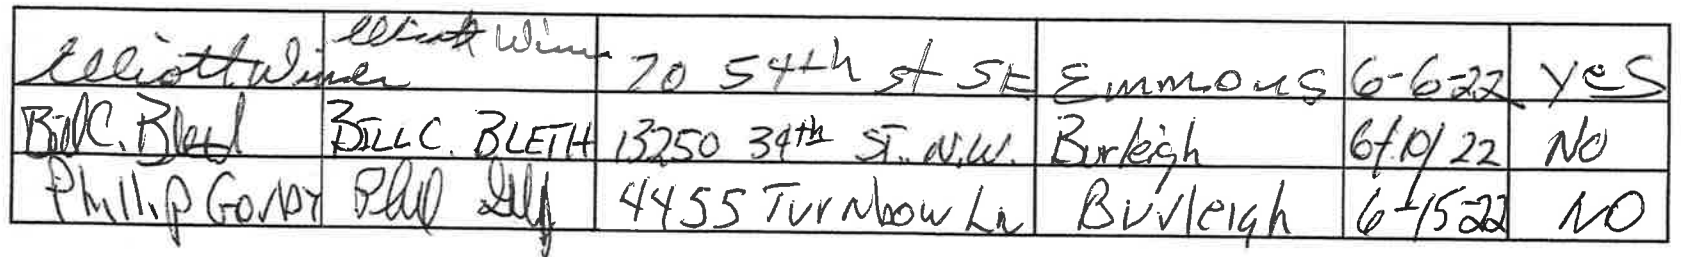 Elliott Elliott 70 54th st SE Emmons 6-6-22 yes
Bill C. BILL C. BLETH 13250 34th ST. N.W. Burleigh 6/10/22 NO
Phillip Phil 4455 Turnbow Ln Burleigh 6-15-22 NO